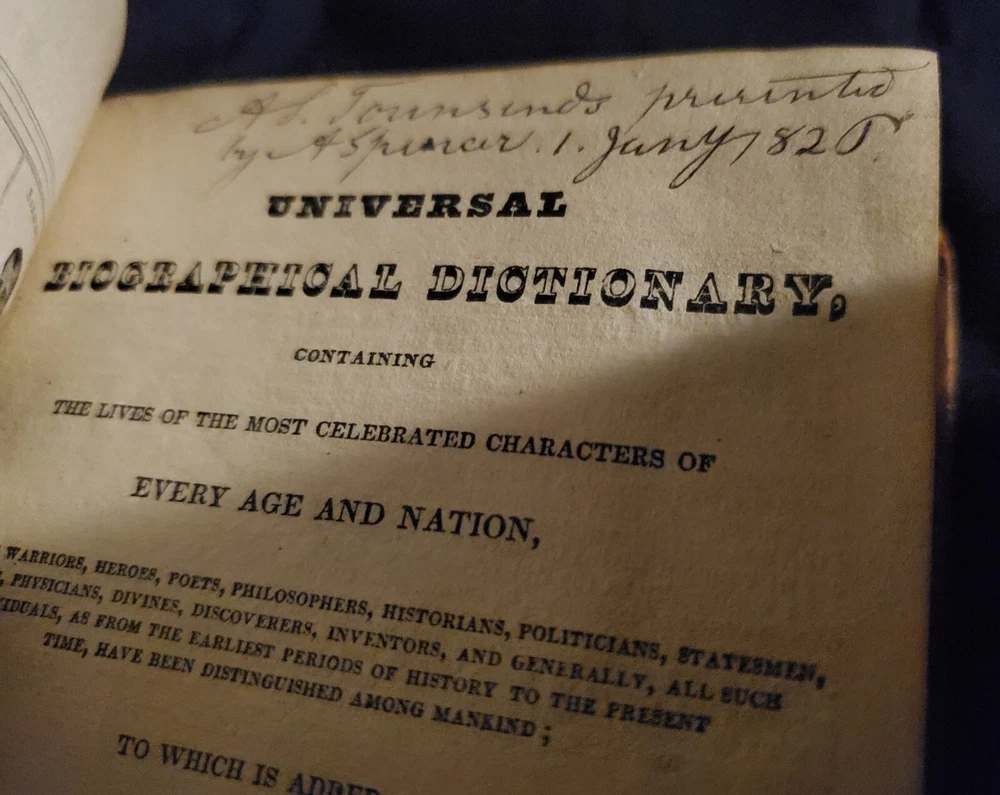 A S. Townsends presented
by A Spencer. 1. Jany 182
UNIVERSAL
BIOGRAPHICAL DICTIONARY,
CONTAINING
THE LIVES OF THE MOST CELEBRATED CHARACTERS OF
EVERY AGE AND NATION,
WARRIORS, HEROES, POETS, PHILOSOPHERS, HISTORIANS, POLITICIANS, STATESMEN,
PHYSICIANS, DIVINES, DISCOVERERS, INVENTORS, AND GENERALLY, ALL SUCH
AS FROM THE EARLIEST PERIODS OF HISTORY TO THE PRESENT
TIME, HAVE BEEN DISTINGUISHED AMONG MANKIND;
TO WHICH IS ADDED